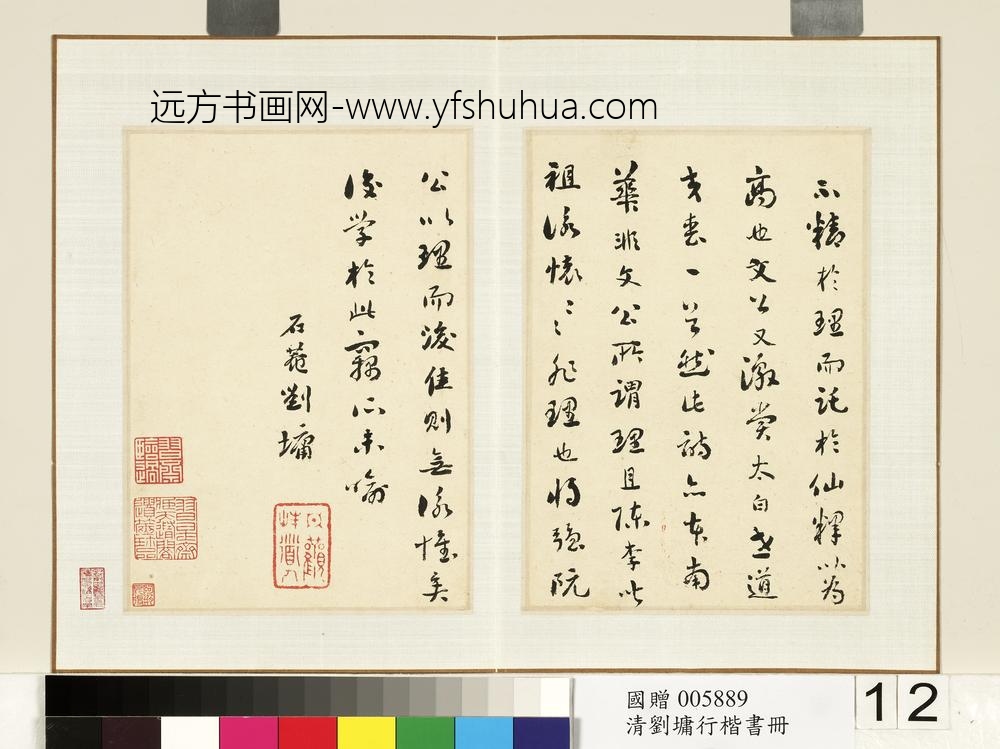 远方书画网-www.yfshuhua.com
不精於理而託於仙釋以為
高也文公又激賞太白世道
交喪一首然此詩亦本南
華非文公所謂理且陳李皆
祖詠懷〻〻非理也將強阮
公以理而後佳則無詠懷矣
後学於此竊所未喻
石菴劉墉
國贈 005889
清劉墉行楷書冊
12